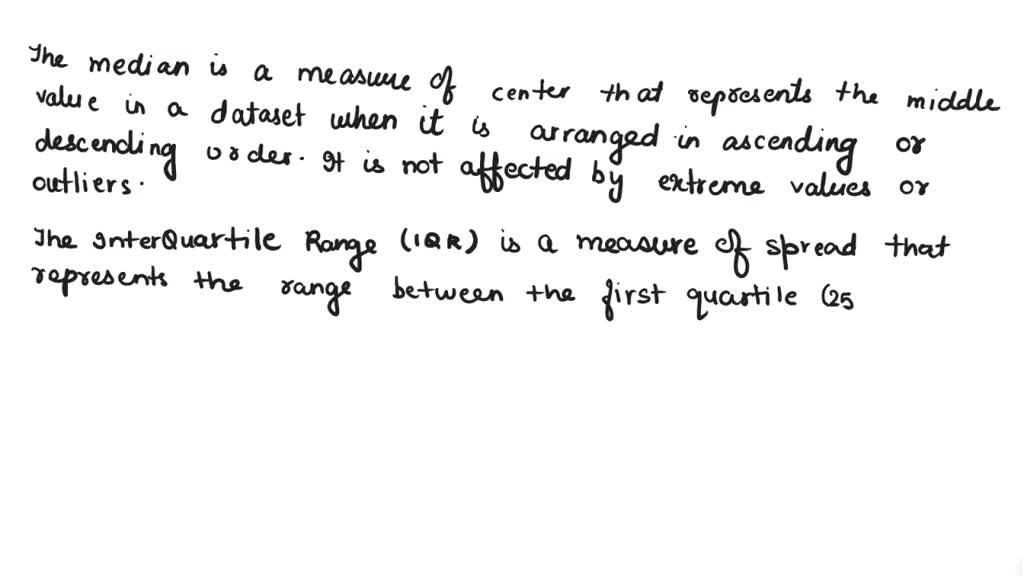 The median is a measure of center that represents the middle
value in a dataset when it is arranged in ascending or
descending order. It is not affected by extreme values or
outliers.
The InterQuartile Range (IQR) is a measure of spread that
represents the range between the first quartile (25